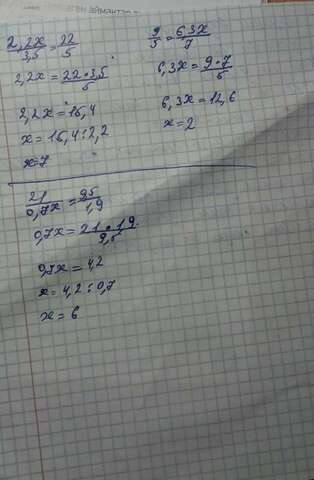 2,2x/3,5 = 22/5
2,2x = 22·3,5/5
2,2x = 15,4
x = 15,4 : 2,2
x = 7
9/5 = 6,3x/7
6,3x = 9·7/5
6,3x = 12,6
x = 2
21/0,7x = 9,5/1,9
0,7x = 21·1,9/9,5
0,7x = 4,2
x = 4,2 : 0,7
x = 6